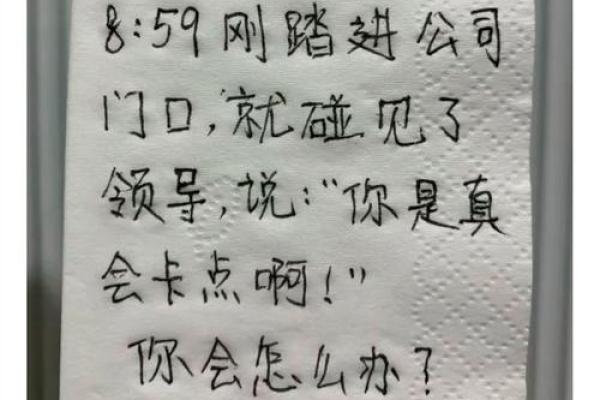 8:59刚踏进公司
门口,就碰见了
领导,说:“你是真
会卡点啊!”
你会怎么办?